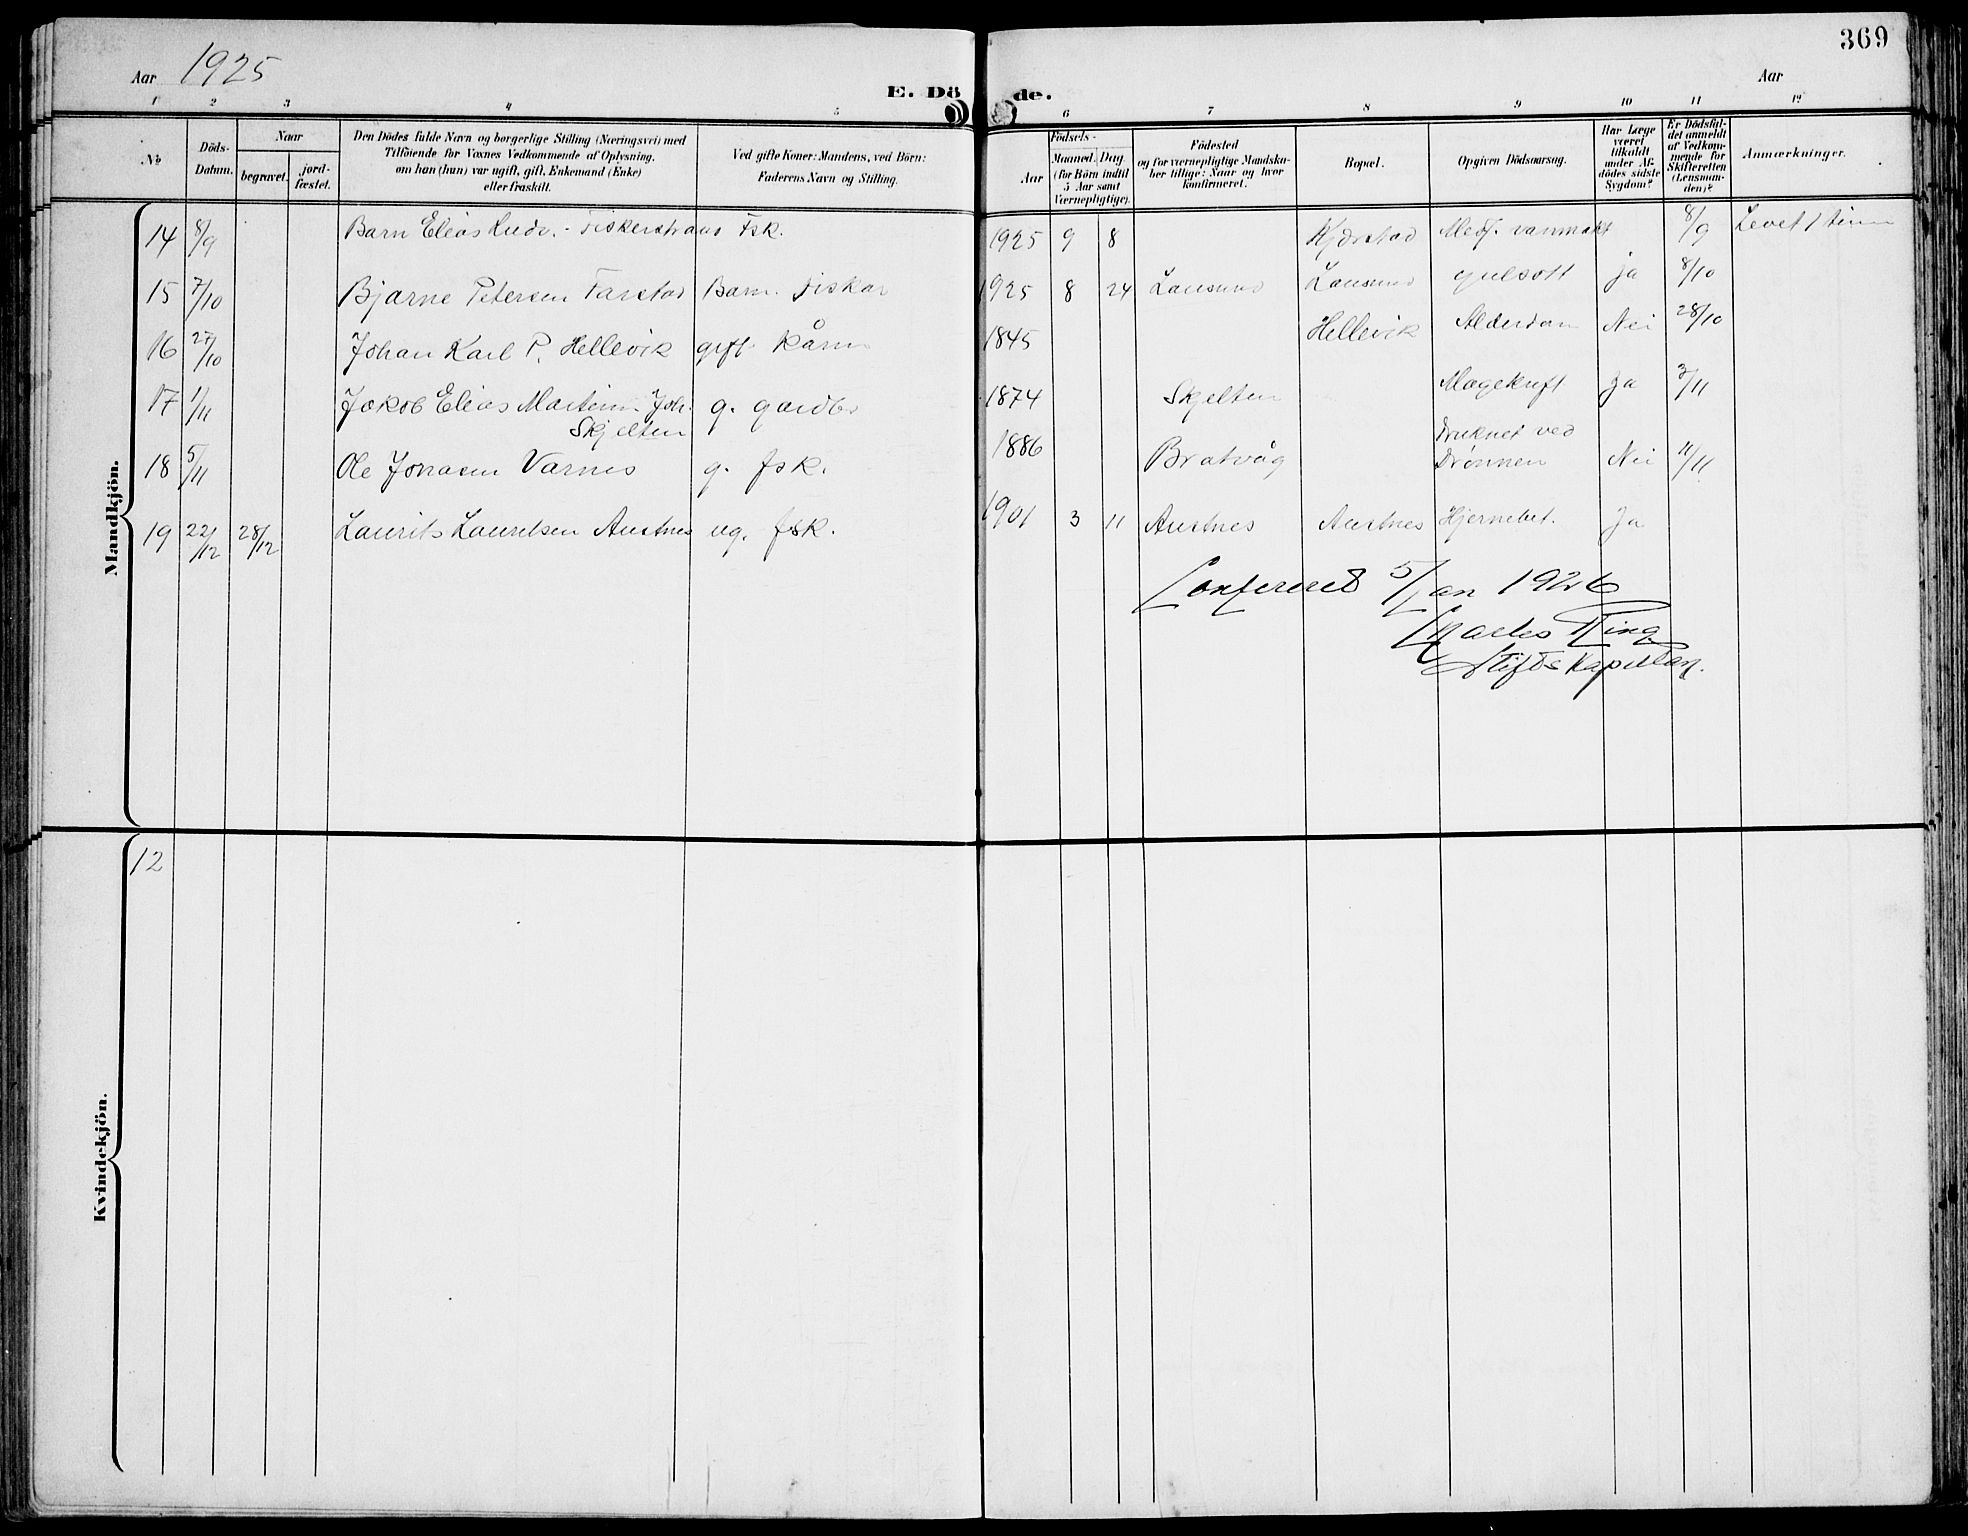 369
Aar 1925
E. Döde.
Aar
1 2 3 4 5 6 7 8 9 10 11 12
No
Döds-Datum.
Naar
begravet.
jord-fæstet.
Den Dödes fulde Navn og borgerlige Stilling (Næringsvei) med
Tilföiende for Voxnes Vedkommende af Oplysning,
om han (hun) var ugift, gift, Enkemand (Enke)
eller fraskilt.
Ved gifte Koner: Mandens, ved Börn:
Faderens Navn og Stilling.
Födsels-
Aar
Maaned. Dag
(for Börn indtil
5 Aar samt
Værnepligtige).
Födested
og for værnepligtige Mandska-
ber tillige: Naar og hvor
konfirmeret.
Bopæl.
Opgiven Dödsaarsag.
Har Læge
været
tilkaldt
under Af-
dödes sidste
Sygdom?
Er Dödsfal-
det anmeldt
af Vedkom-
mende for
Skifteretten
(Lensman-
den)?
Anmærkninger.
Mandkjön.
14 8/9 Barn Elias Ludv. - Fiskerstrand Fsk. 1925 9 8 Kjærstad Medf. vanmakt 8/9 Levet 1 time
15 7/10 Bjarne Petersen Farstad Barn. Fiskar 1925 8 24 Longsund gulsott ja 8/10
16 27/10 Johan Karl P. Hellevik gift kårm 1845 Hellevik Alderdom Nei 28/10
17 1/11 Jakob Elias Martin Joh. g. gardbr 1874 Skjelten Magekreft Ja 3/11
Skjelten
18 5/11 Ole Jonasen Varnes g. fsk. 1886 Bratvåg Druknet ved
Drönnen Nei 11/11
19 22/12 28/12 Laurits Lauritsen Austnes ug. fsk. 1901 3 11 Austnes Austnes Hjernebet. Ja
Confereret 5/Jan 1926
Charles Ring
Stiftskapellan.
Kvindekjön.
12